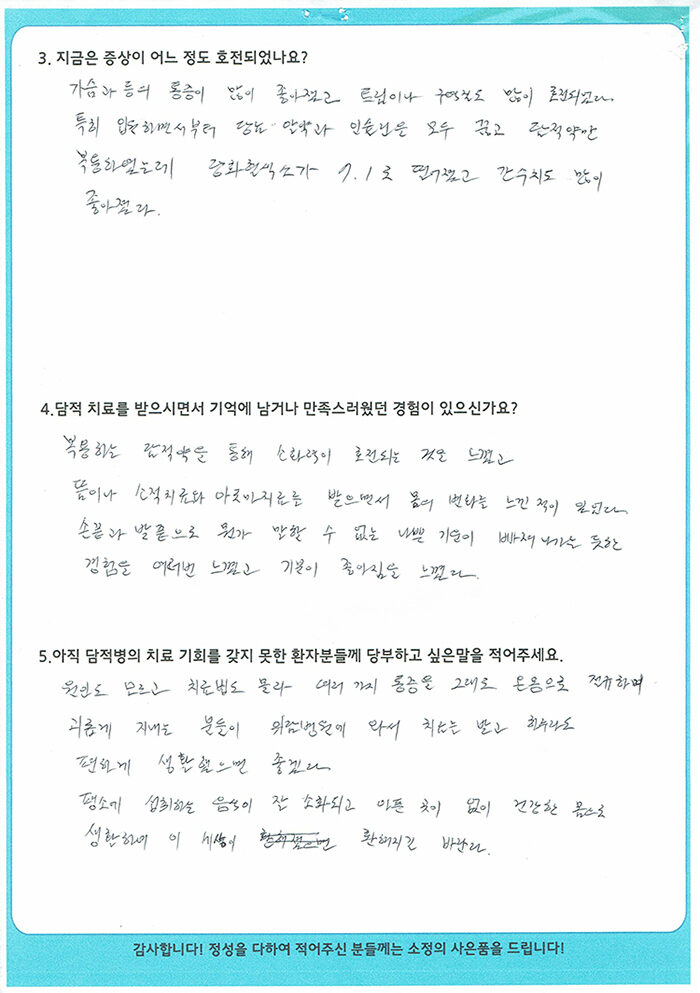 3. 지금은 증상이 어느 정도 호전되었나요?
가슴과 등의 통증이 많이 좋아졌고 트림이나 구역질도 많이 호전되었다.
특히 입원하면서부터 당뇨 알약과 인슐린은 모두 끊고 담적약만
복용하였는데 당화혈색소가 7.1로 떨어졌고 간수치도 많이
좋아졌다.
4.담적 치료를 받으시면서 기억에 남거나 만족스러웠던 경험이 있으신가요?
복용하는 담적약을 통해 소화력이 호전되는 것을 느꼈고
뜸이나 소적치료와 아로마치료를 받으면서 몸의 변화를 느낀 적이 있었다.
손끝과 발끝으로 뭔가 말할 수 없는 나쁜 기운이 빠져나가는 듯한
경험을 여러번 느꼈고 기분이 좋아짐을 느꼈다.
5.아직 담적병의 치료 기회를 갖지 못한 환자분들께 당부하고 싶은말을 적어주세요.
원인도 모르고 치료법도 몰라 여러 가지 통증을 그대로 온몸으로 하며
괴롭게 지내는 분들이 위담병원에 와서 치료를 받고 하루라도
편하게 생활했으면 좋겠다.
평소에 섭취하는 음식이 잘 소화되고 아픈 곳이 없이 건강한 몸으로
생활하여 이 세상이 환해지길 바란다.
감사합니다! 정성을 다하여 적어주신 분들께는 소정의 사은품을 드립니다!